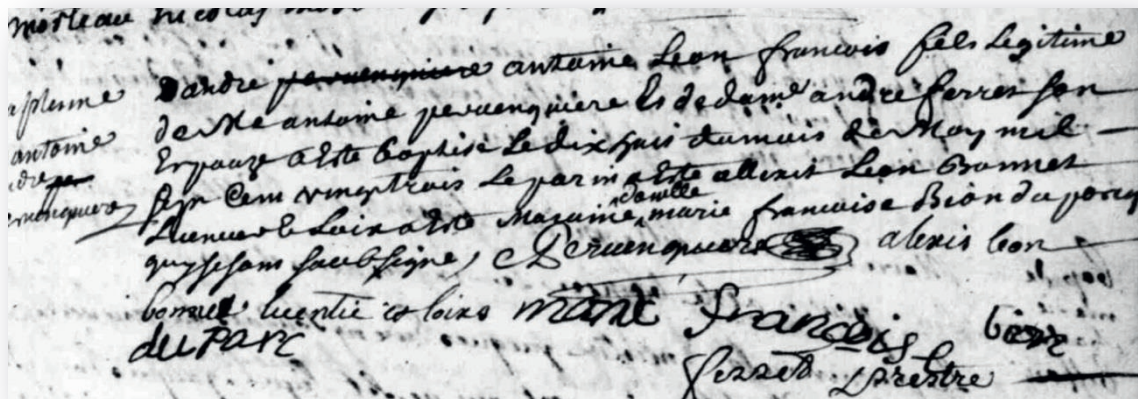 D andre pervenquiere antoine Leon francois fils Legitime
de Me antoine pervenquiere Et de dame andre ferret son
Espouze a Este baptisé Le dix huis du mois de May mil
Sept Cens vingt trois Le parin a Esté allexis Leon Bonnet
Licentié Es Loix a Esté Maraine damlle marie francoise Bion du parcq
quy se sont soubsigné Pervenquiere alexis leon
bonnet licentié es loix marie francois bion
du Parc
ferret prestre
antoine